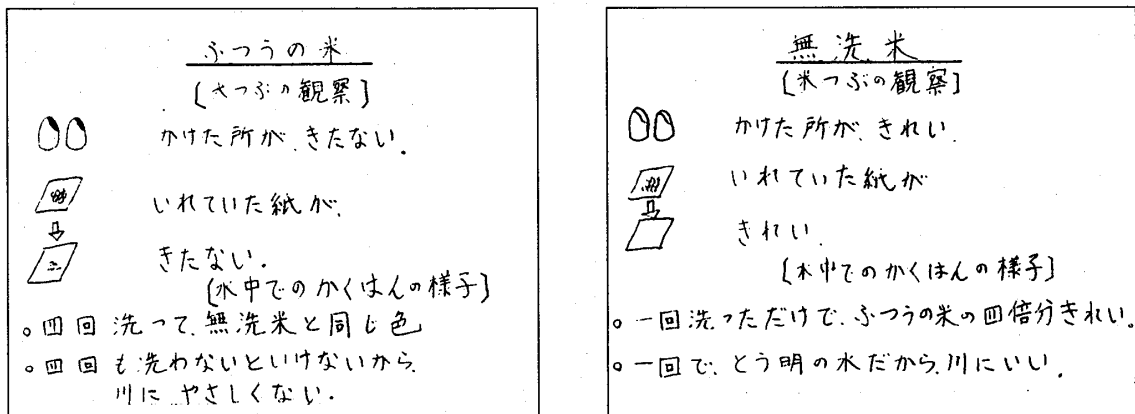 ふつうの米
[米つぶの観察]
かけた所が、きたない。
いれていた紙が、
きたない。
[水中でのかくはんの様子]
○四回洗って、無洗米と同じ色
○四回も洗わないといけないから、
川に、やさしくない。
無洗米
[米つぶの観察]
かけた所が、きれい。
いれていた紙が
きれい。
[水中でのかくはんの様子]
○一回洗っただけで、ふつうの米の四倍分きれい。
○一回で、とう明の水だから、川にいい。